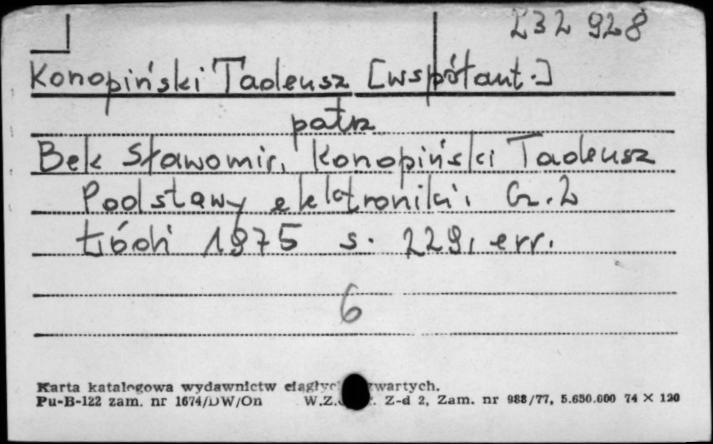 232 928
Konopiński Tadeusz [współaut.]
patrz
Bek Sławomir, Konopiński Tadeusz
Podstawy elektroniki. Cz. 2
Łódź 1975 s. 229, err.
6
Karta katalogowa wydawnictw zwartych.
Pu-B-122 zam. nr 1674/DW/On W.Z. Z-d 2, Zam. nr 988/77, 5.650.000 74 X 120